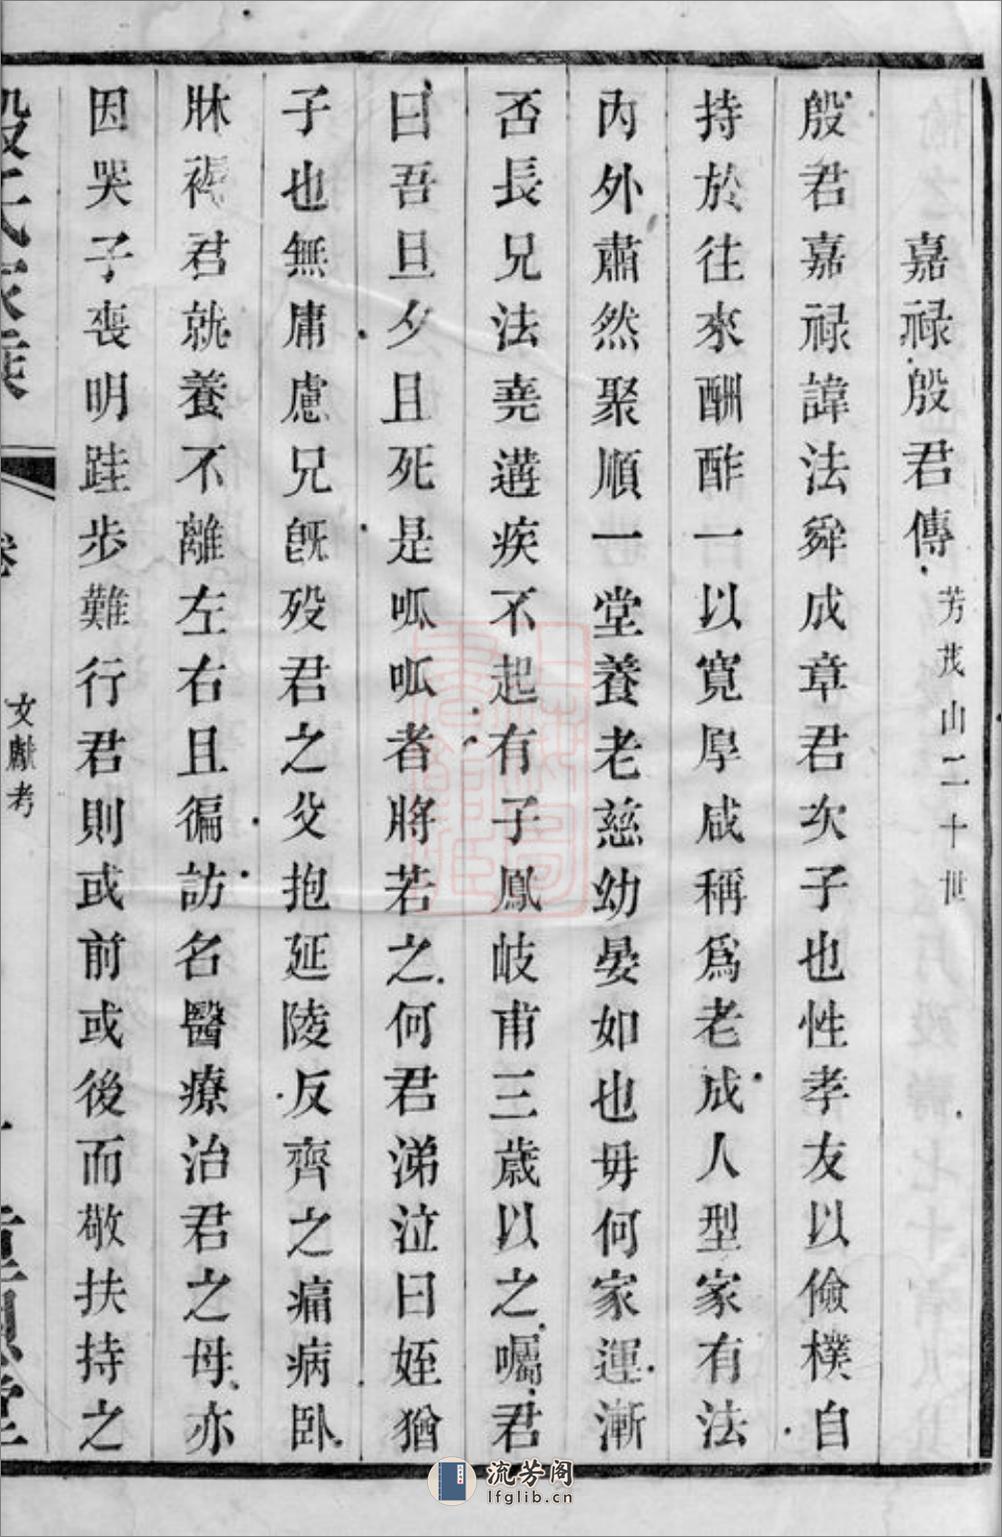 嘉祿殷君傳 芳茂山二十世
殷君嘉祿諱法舜成章君次子也性孝友以儉樸自
持於往來酬酢一以寬厚咸稱爲老成人型家有法
內外肅然聚順一堂養老慈幼晏如也毋何家運漸
否長兄法堯遘疾不起有子鳳岐甫三歲以之囑君
曰吾旦夕且死是呱呱者將若之何君涕泣曰姪猶
子也無庸慮兄旣歿君之父抱延陵反齊之痛病臥
牀褥君就養不離左右且徧訪名醫療治君之母亦
因哭子喪明跬步難行君則或前或後而敬扶持之
殷氏家乘 卷 文獻考
流芳阁
lfglib.cn